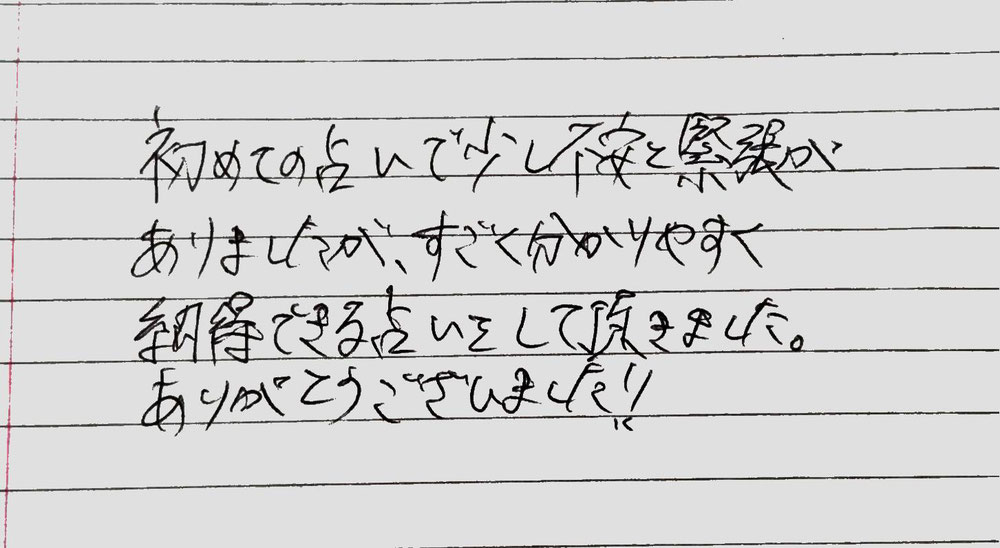 初めての占いで少し不安と緊張が
ありましたが、すごく分かりやすく
納得できる占いをして頂きました。
ありがとうございました!!